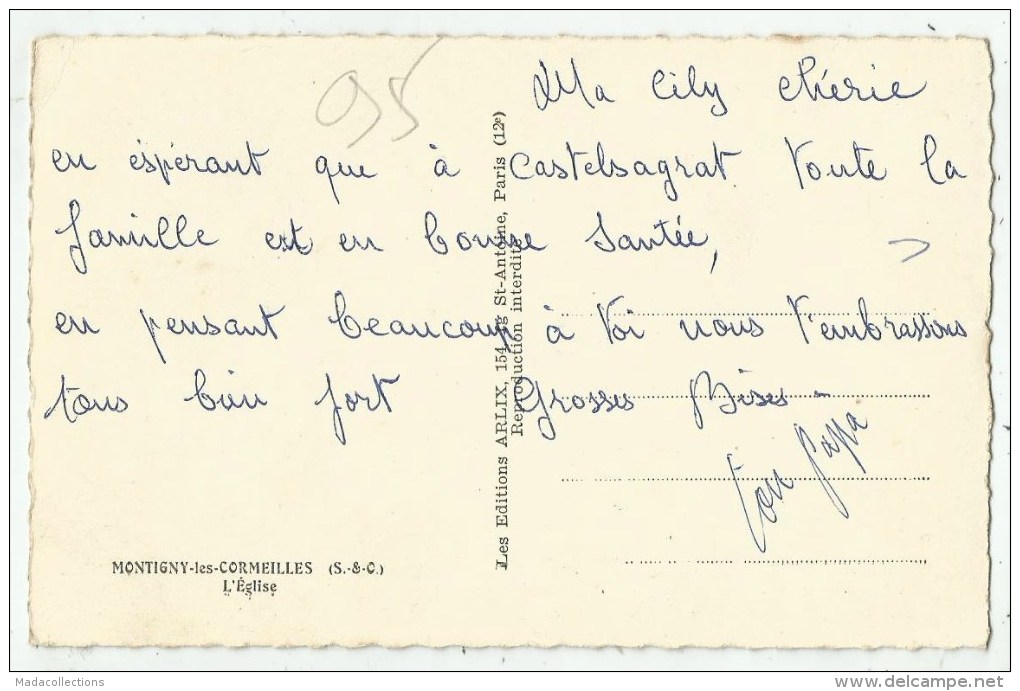 95
Ma Cily chérie
en éspérant que à Castelsagrat toute la
famille est en bonne santée,
en pensant beaucoup à toi nous t'embrassons
tous bien fort Grosses Bises -
Ton Papa
Les Editions ARLIX, 154, Fg St-Antoine, Paris (12e)
Reproduction interdite
MONTIGNY-les-CORMEILLES (S.-&-O.)
L'Église
Madacollections
www.delcampe.net